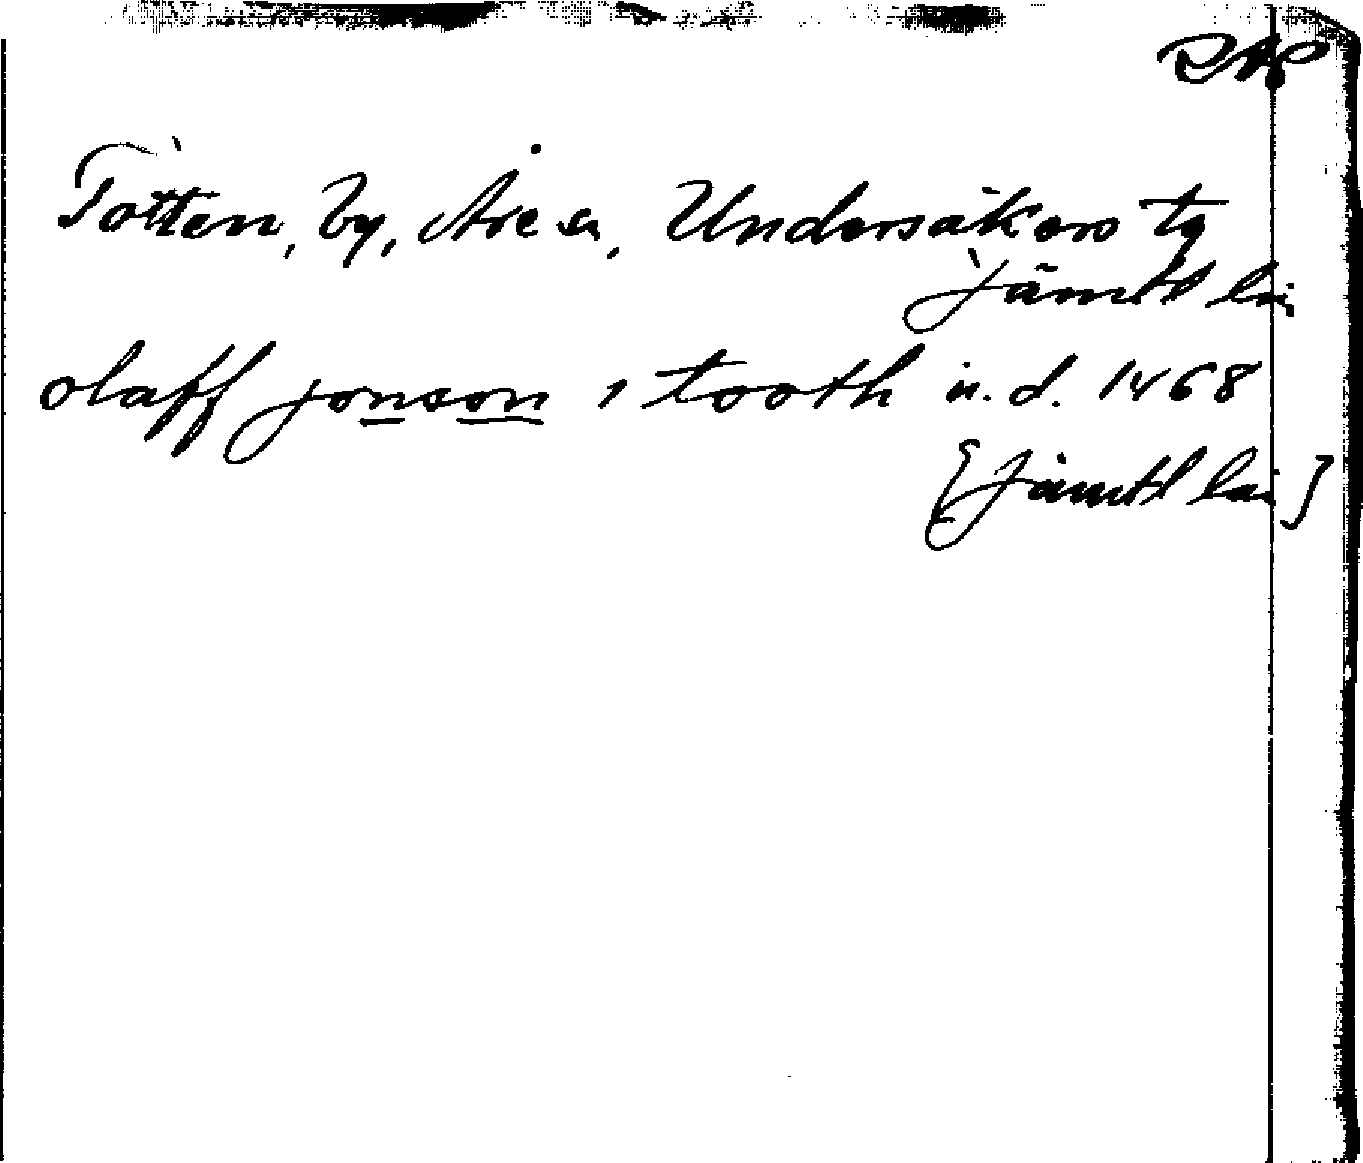 RAP
Totten, by, Åre sn, Undersåkers tg
Jämtl län
olaff jonson i tooth u. d. 1468
[Jämtl län]